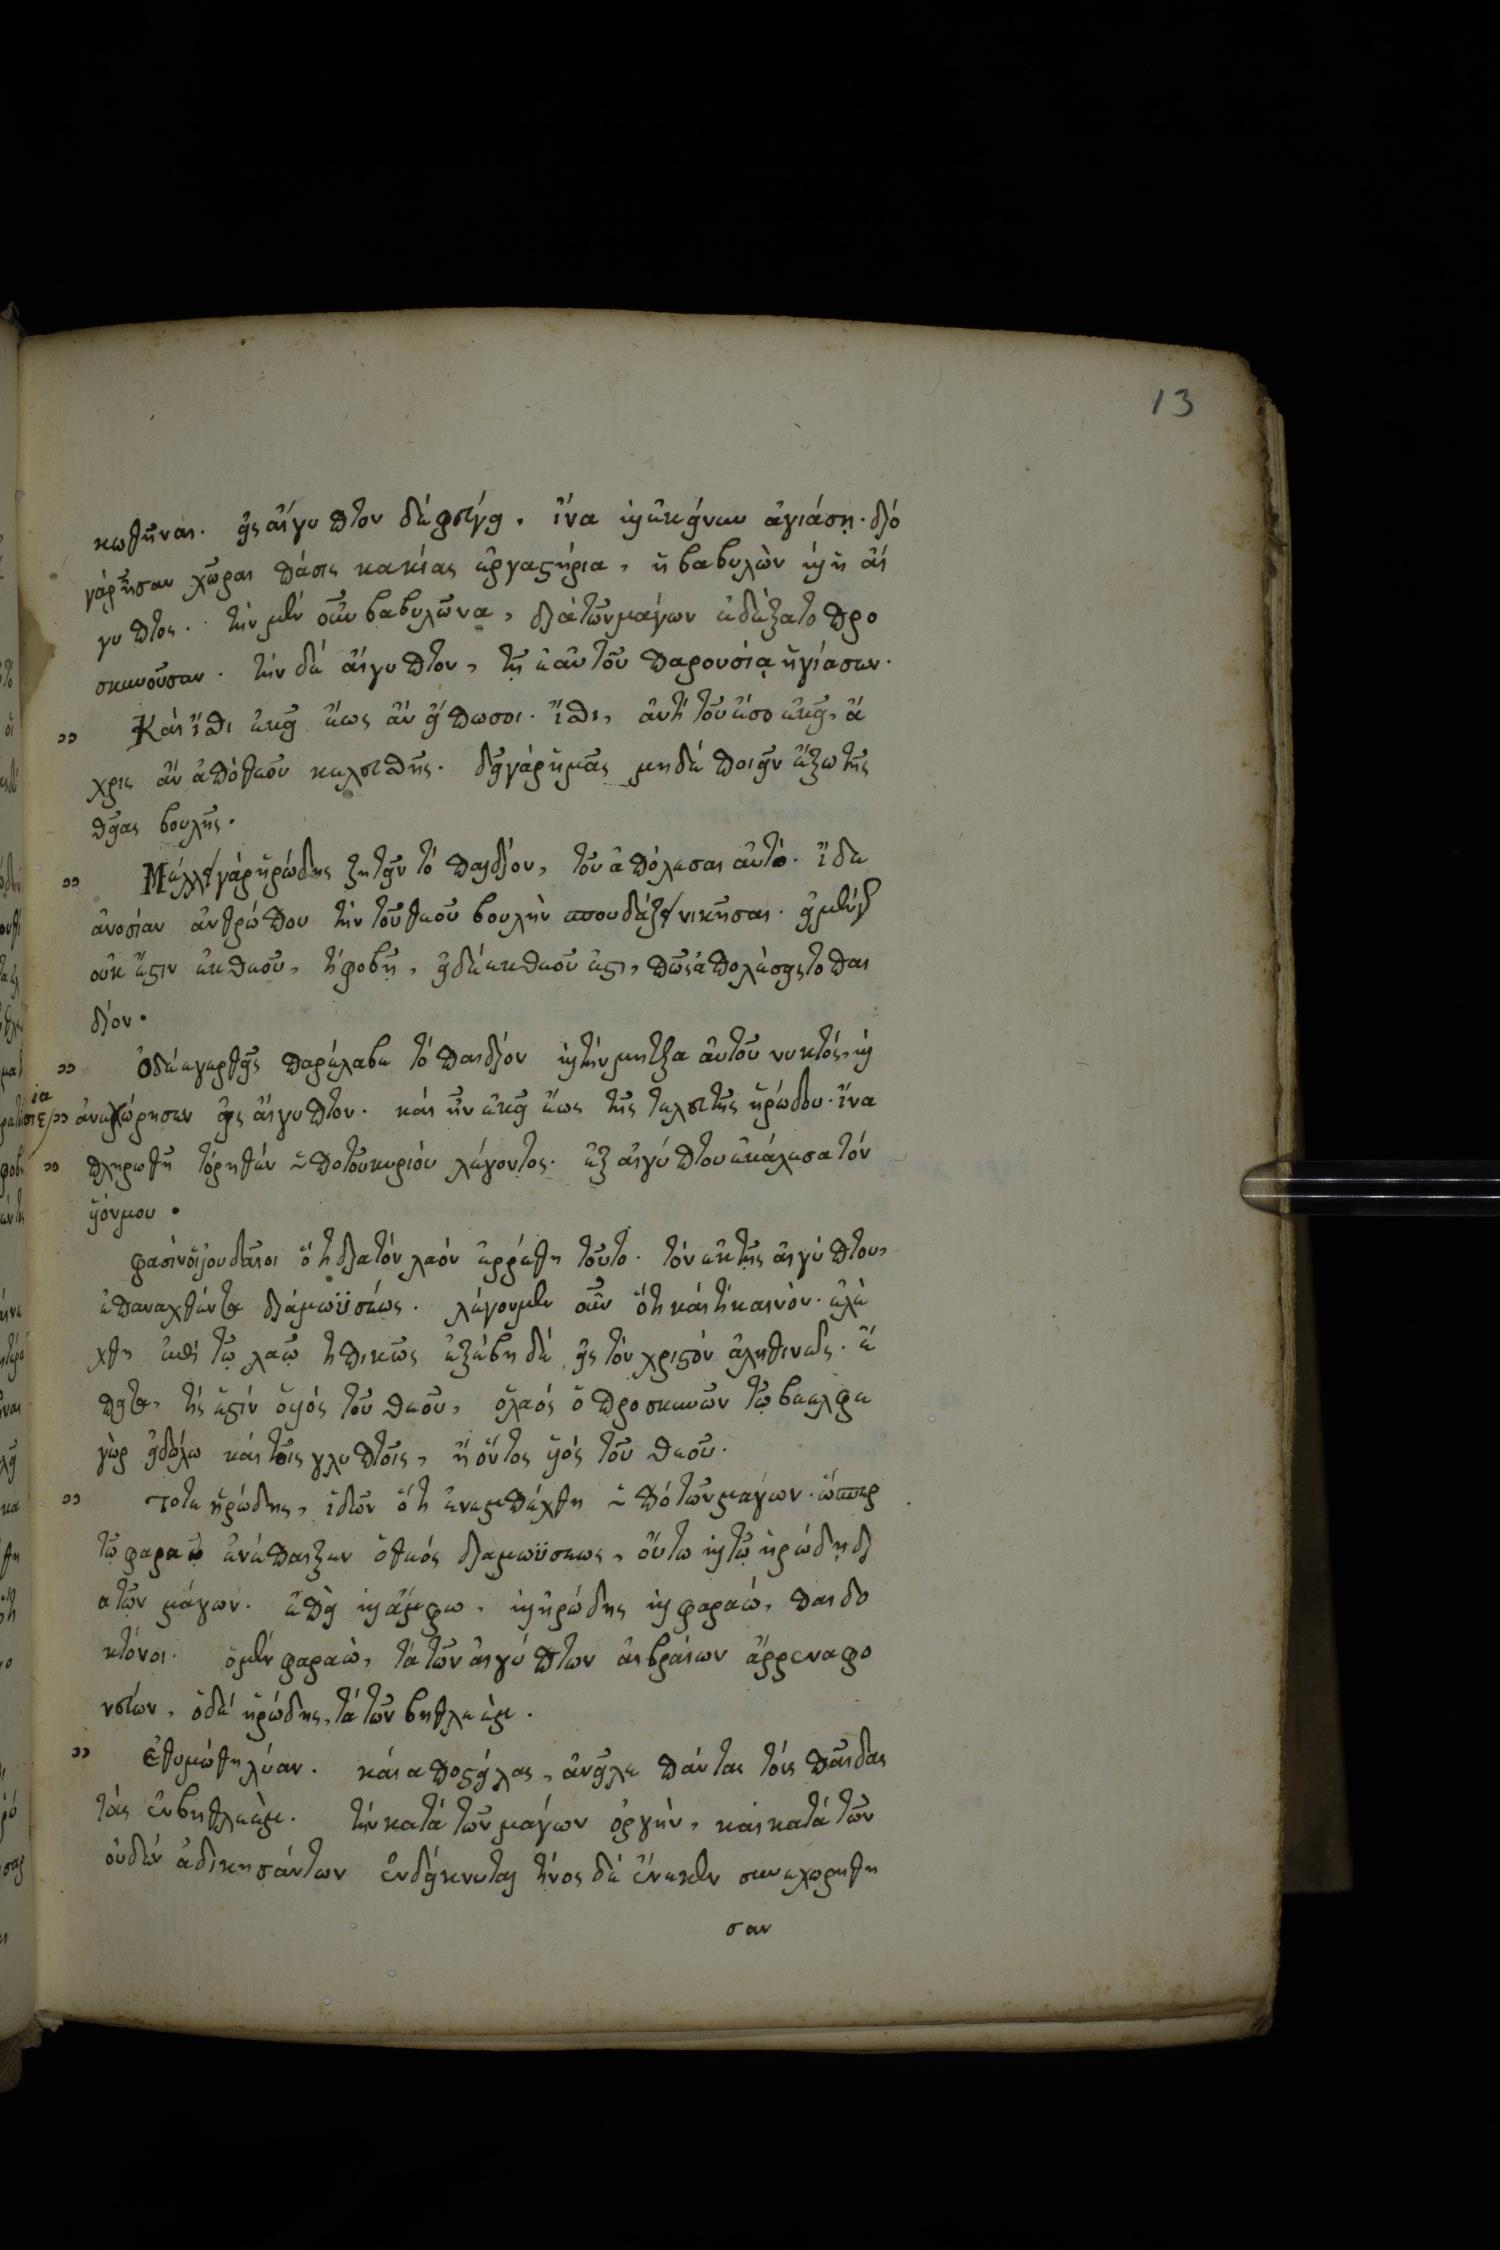 13
κωθῆναι. εἰς αἴγυπτον δέ φεύγει. ἵνα καὶ ἐκείνην ἁγιάσῃ. δύο
γάρ ἦσαν χῶραι πάσις κακίας ἐργαστήρια, ἡ βαβυλὼν καὶ ἡ αἴ
γυπτος. τήν μέν οὖν βαβυλῶνα, διά τῶν μάγων ἐδέξατο προ
σκυνοῦσαν. τήν δέ αἴγυπτον, τῇ ἑαυτοῦ παρουσίᾳ ἡγίασεν.
Καί ἴσθι ἐκεῖ ἕως ἄν εἴπωσοι. ἴσθι, ἀντί τοῦ ἔσο ἐκεῖ, ἄ
χρις ἄν ἀπό θεοῦ κελευσθῆς. δεῖ γάρ ἡμᾶς μηδέ ποιεῖν ἔξω τῆς
θείας βουλῆς.
Μέλλει γάρ ἡρώδης ζητεῖν τό παιδίον, τοῦ ἀπόλεσαι αὐτό. ἴδε
ἀνοσίαν ἀνθρώπου τήν τοῦ θεοῦ βουλὴν σπουδάζει νικῆσαι. εἰ μέν γ
οὐκ ἔστιν ἐκ θεοῦ, τί φοβῆ, εἰ δέ ἐκ θεοῦ ἐστι, πῶς ἀπολέσεις το παι
δίον.
ὁ δέ εγερθεῖς παρέλαβε τό παιδίον καὶ τήν μητέρα αὐτοῦ νυκτός, καὶ
ἀνεχώρησεν εἰς αἴγυπτον. καί ἦν ἐκεῖ ἕως τῆς τελευτῆς ἡρώδου. ἵνα
πληρωθῆ τό ρηθέν ὑπο τοῦ κυρίου λέγοντος. ἐξ αἰγύπτου ἐκάλεσα τόν
υἱόν μου.
φασίν οἱ ἰουδαῖοι ὅτι διά τόν λαόν ἐρρέθη τοῦτο. τόν ἐκ τῆς αἰγύπτου,
ἐπαναχθέντα διά μωϋσέως. λέγουμεν οὖν ὅτι καί τί καινὸν. ἐλέ
χθη ἐπί τῷ λαῷ τιπικῶς ἐξέβη δέ εἰς τόν χριστόν ἀληθινῶς. ἔ
πειτα, τίς ἐστίν ὁ υἱός τοῦ θεοῦ, ὁ λαός ὁ προσκυνῶν τῷ βεελφε
γὼρ εἰδόλω καί τοῖς γλυπτοῖς, ἤ ὄντος υἱός τοῦ θεοῦ.
τοτε ἡρώδης, ἰδῶν ὅτι ἐνεμπέχθη ὑπό τῶν μάγων. ὥσπερ
τῷ φαραῷ ἐνέπαιξεν ὁ θεός διά μωϋσεως, οὕτω καὶ τῷ ἡρώδῃ δι
α τῶν μάγων. ἐπεὶ καὶ ἄμφω, καὶ ἡρώδης καὶ φαραώ, παιδο
κτόνοι. ὁ μέν φαραὼ, τά τῶν αἰγύπτων αἰβραίων ἄρρενα φο
νεύων, ὁ δέ ἡρώδης, τά τῶν βηθλεὲμ.
ἐθυμώθη λίαν. καί αποστείλας, ἀνεῖλε πάντας τοίς παῖδας
τάς ἐν βηθλεὲμ. τήν κατά τῶν μάγων ὀργὴν, καί κατά τῶν
οὐδέν ἀδικησάντων ἐνδείκνυται τίνος δέ ἕνεκεν συνεχορηθη
σαν